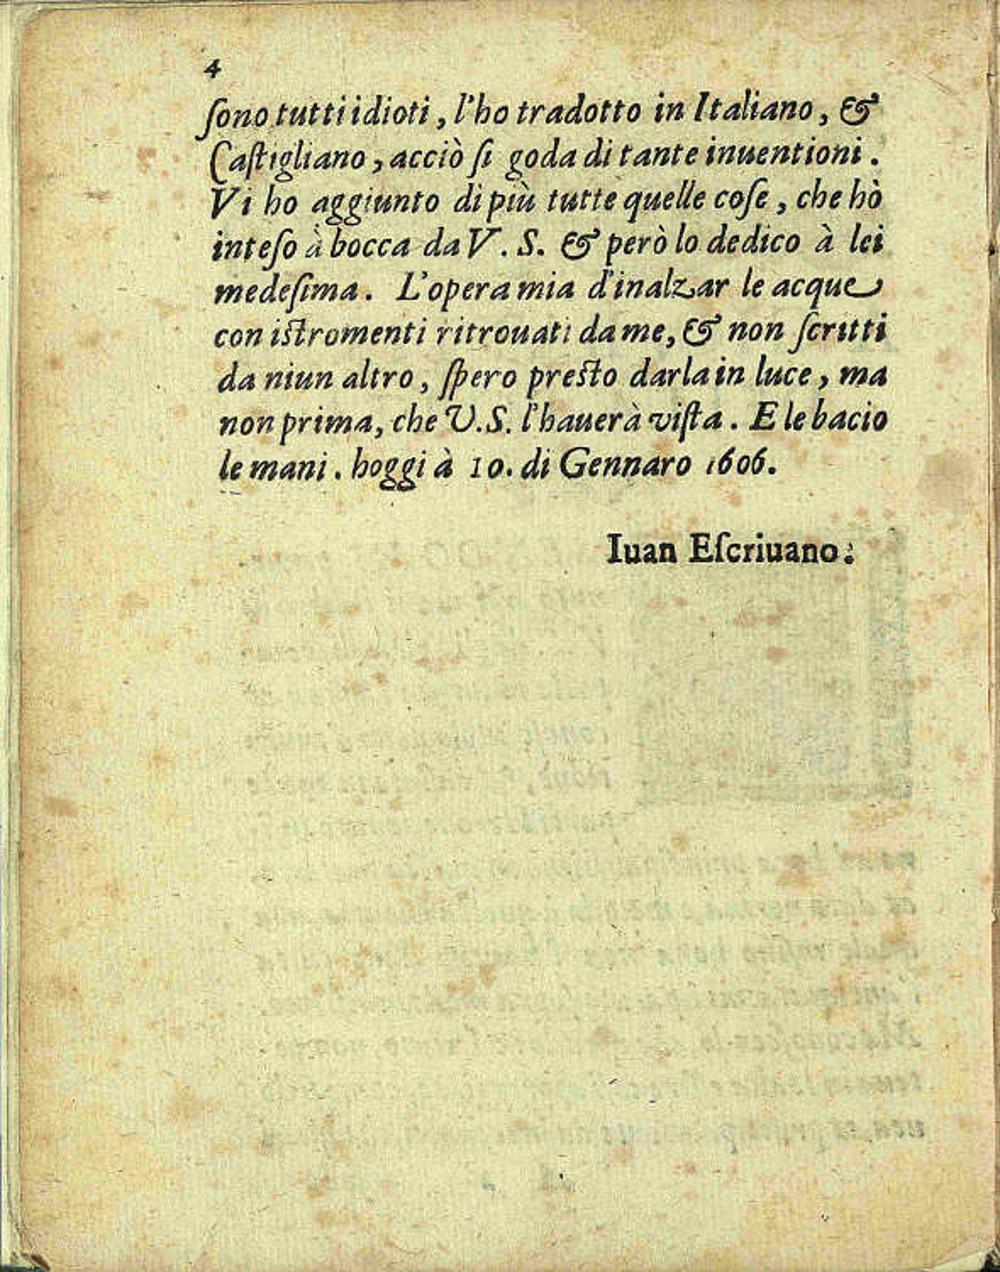 4
ſono tutti idioti, l'ho tradotto in Italiano, &
Caſtigliano, acciò ſi goda di tante inuentioni.
Vi ho aggiunto di più tutte quelle coſe, che hò
inteſo à bocca da V. S. & però lo dedico à lei
medeſima. L'opera mia d'inalzar le acque
con iſtromenti ritrouati da me, & non ſcritti
da niun altro, ſpero preſto darla in luce, ma
non prima, che V.S. l'hauerà viſta. E le bacio
le mani. hoggi à 10. di Gennaro 1606.
Iuan Eſcriuano.